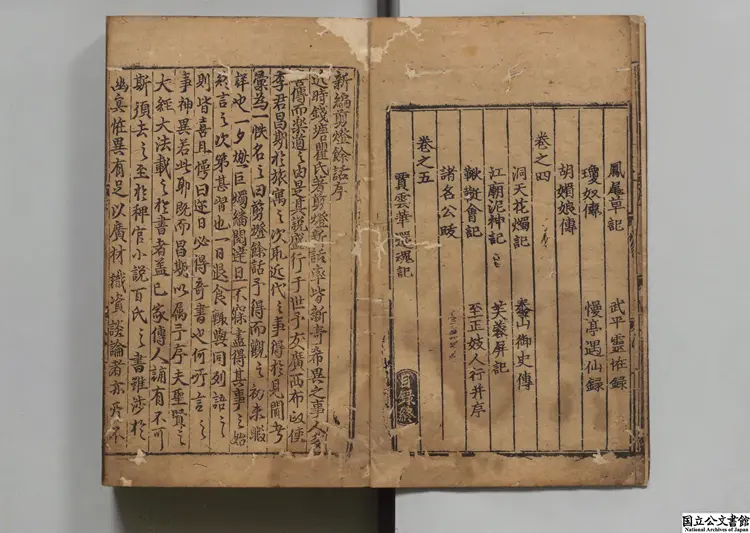 鳳尾草記 武平靈恠錄
瓊奴傳 幔亭遇仙錄
胡媚娘傳
卷之四
洞天花燭記 泰山御史傳
江廟泥神記 芙蓉屏記
鞦韆會記 至正妓人行并序
諸名公跋
卷之五
賈雲華還魂記
目錄終
新編剪燈餘話序
近時錢塘瞿氏著剪燈新話率皆新奇希異之事人多
傳而樂道之由是其說盛行于世予友廣西布政使
李君昌期於旅寓之次取近代之事得於見聞者
彙為一帙名之曰剪燈餘話予得而觀之初未暇
詳也一夕燃巨燭繙閱達旦不寐盡得其事之始
終言之次第甚習也一日退食輙與同列語之
則皆喜且愕曰邇日必得奇書也何所言之
事神異若此耶既而昌期以属予序夫聖賢之
大經大法載之於書者盖已家傳人誦有不可
斯須去之至於稗官小說百氏之書雖涉於
幽冥恠異有足以廣材識資談論者亦所不
国立公文書館
National Archives of Japan